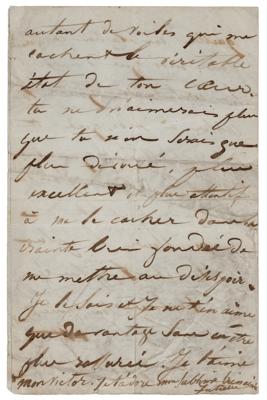 autant de voiles qui me
cachent le véritable
état de ton cœur.
tu ne m'aimerais plus
que tu n'en serais que
plus dévoué, plus
excellent et plus attentif
à me le cacher dans la
crainte bien fondée de
me mettre au désespoir.
Je le sais et je ne t'en aime
que davantage sans en être
plus rassurée. Je t'aime
mon Victor. Je t'adore mon
Juliette